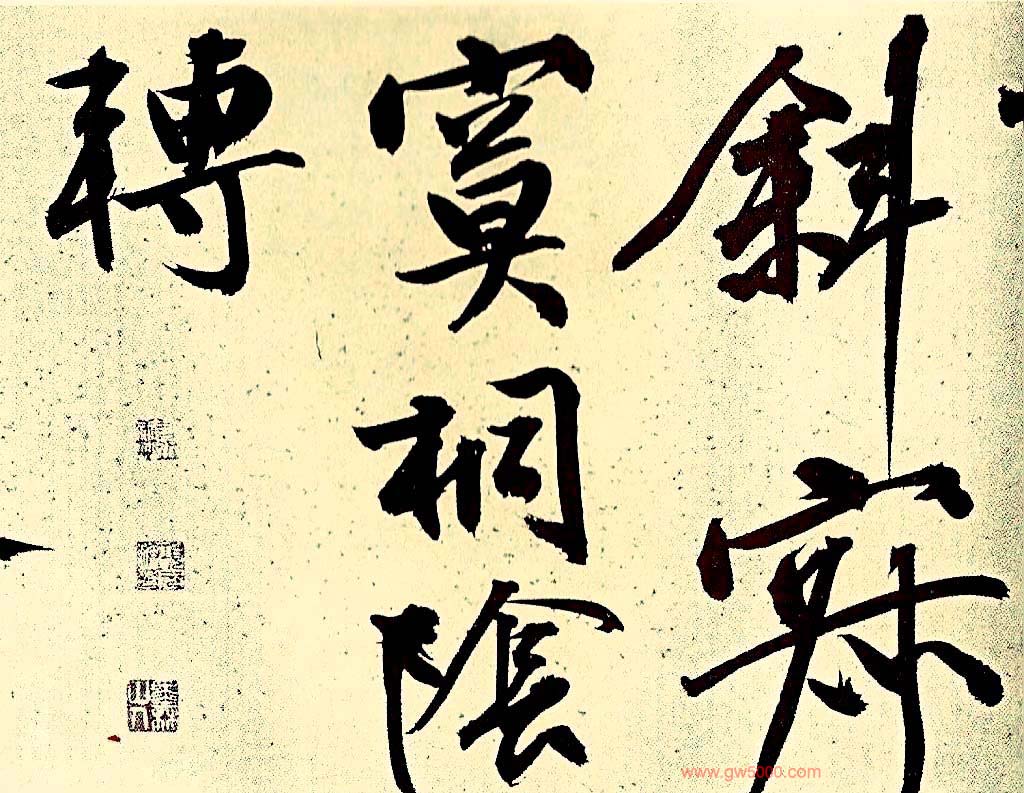 斜寂
寞桐陰
轉
www.gw5000.com